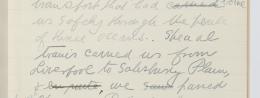 transport that had carried borne
us safely through the perils
of three oceans. Special
trains carried us from
Liverpool to Salisbury Plain,
& en route, we passed